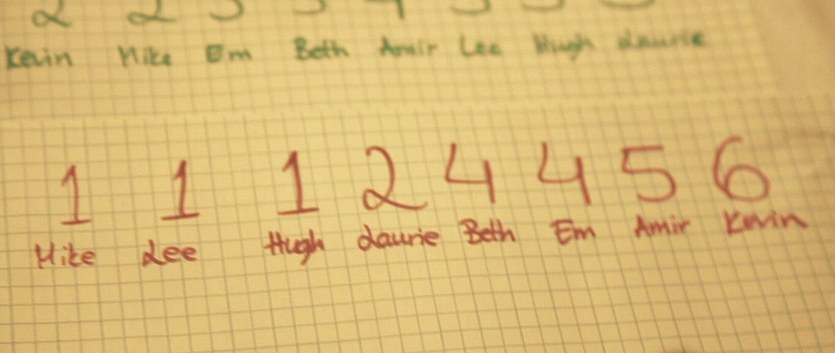 2 2 3 3 4 5 5
Kevin Mike Em Beth Amir Lee Hugh Laurie
1 1 1 2 4 4 5 6
Mike Lee Hugh Laurie Beth Em Amir Kevin